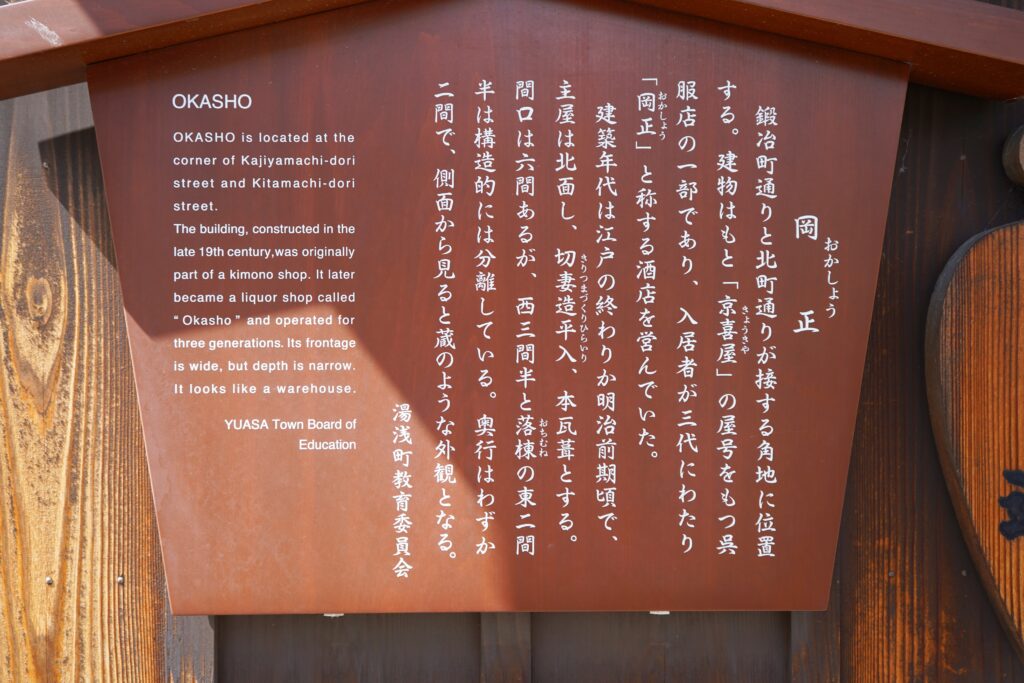 岡正
おかしょう
鍛冶町通りと北町通りが接する角地に位置
する。建物はもと「京喜屋」の屋号をもつ呉
きょうきや
服店の一部であり、入居者が三代にわたり
「岡正」と称する酒店を営んでいた。
おかしょう
建築年代は江戸の終わりか明治前期頃で、
主屋は北面し、切妻造平入、本瓦葺とする。
きりつまづくりひらいり
間口は六間あるが、西三間半と落棟の東二間
おちむね
半は構造的には分離している。奥行はわずか
二間で、側面から見ると蔵のような外観となる。
湯浅町教育委員会
OKASHO
OKASHO is located at the
corner of Kajiyamachi-dori
street and Kitamachi-dori
street.
The building, constructed in the
late 19th century,was originally
part of a kimono shop. It later
became a liquor shop called
“Okasho” and operated for
three generations. Its frontage
is wide, but depth is narrow.
It looks like a warehouse.
YUASA Town Board of
Education